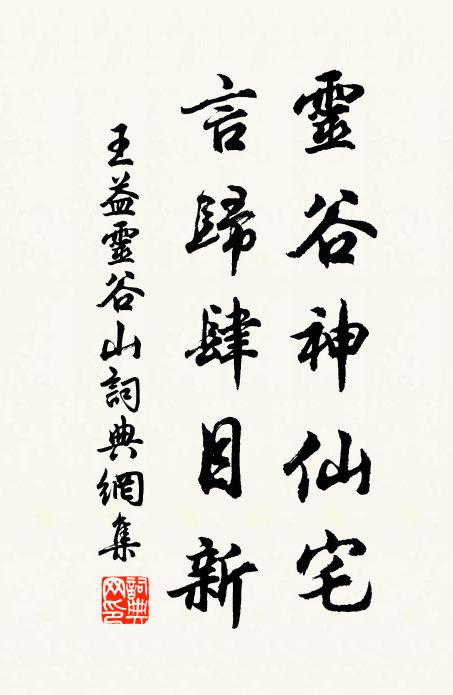 靈谷神仙宅
言歸肆目新
王益靈谷山詞典網集
詞典網印